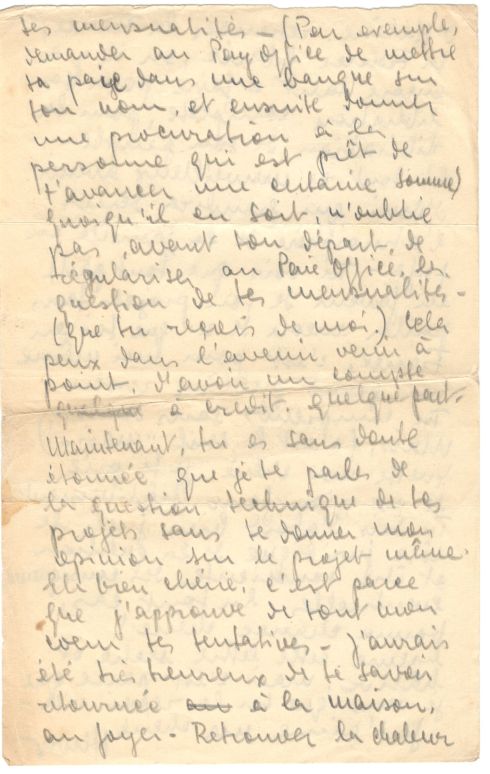 tes mensualités - (Par exemple,
demander au Pay Office de mettre
ta paye dans une banque sur
ton nom, et ensuite donner
une procuration à la
personne qui est prêt de
t'avancer une certaine somme)
quoiqu'il en soit, n'oublie
pas, avant ton départ, de
régulariser au Paie Office, la
question de tes mensualités -
(que tu reçois de moi.) Cela
peux dans l'avenir venir à
point, d'avoir un compte
quelque à crédit. quelque part.
Maintenant, tu es sans doute
étonnée que je te parles de
la question technique de tes
projets sans te donner mon
opinion sur le projet même.
Eh bien chérie, c'est parce
que j'approuve de tout mon
coeur tes tentatives - J'aurais
été très heureux de te savoir
retournée au à la maison,
au foyer - Retrouver la chaleur